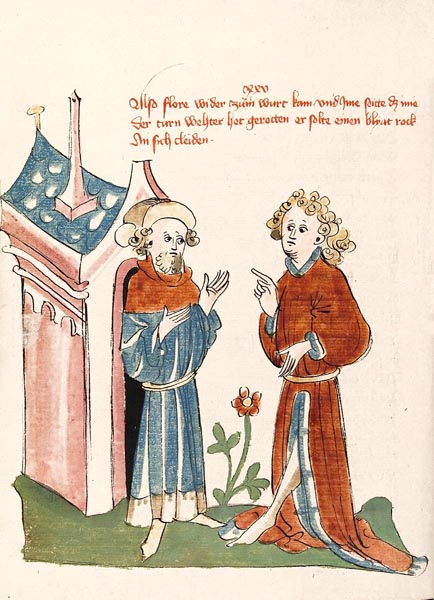 xxv
Also flore wider zům wurt kam vnd jme seitte dz ime
der turn wehter het gerotten er solte einen blyat rock
An sich cleiden ·